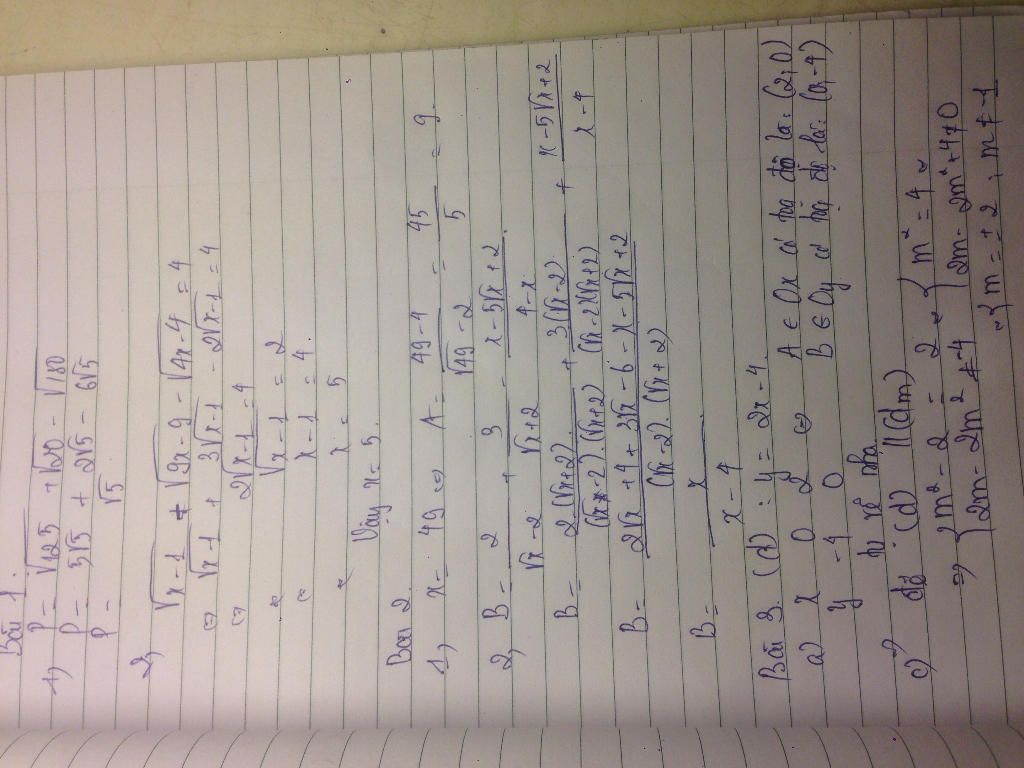 Bài 1.
1) P = √125 + √20 - √180
P = 5√5 + 2√5 - 6√5
P = √5
2) √x-1 + √9x-9 - √4x-4 = 4
⇔ √x-1 + 3√x-1 - 2√x-1 = 4
⇔ 2√x-1 = 4
⇔ √x-1 = 2
⇔ x-1 = 4
⇔ x = 5
Vậy x = 5.
Bài 2
1) x = 49 ⇔ A = (49-4)/(√49-2) = 45/5 = 9.
2) B = 2/(√x-2) + 3/(√x+2) - (x-5√x+2)/(4-x)
B = 2(√x+2)/((√x-2).(√x+2)) + 3(√x-2)/((√x-2)(√x+2)) + (x-5√x+2)/(x-4)
B = (2√x+4+3√x-6-x-5√x+2)/((√x-2).(√x+2))
B = x/(x-4)
Bài 3 (d) : y = 2x-4
a) x 0 2 ⇔ A ∈ Ox có toạ độ là: (2,0)
y -4 0 B ∈ Oy có toạ độ là: (0,-4)
tự vẽ nha
c) để (d) // (dm)
{ m² - 2 = 2 ⇔ { m² = 4
{ 2m - 2m² ≠ -4 { 2m - 2m² + 4 ≠ 0
⇔ { m = ±2 ; m ≠ -1